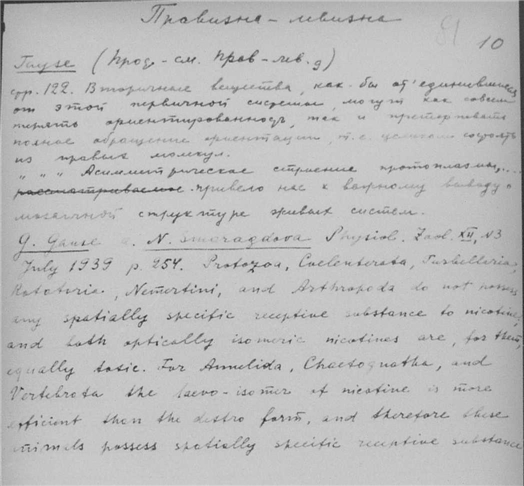 Правизна-левизна
81
10
Гаузе (прод. - см. Прав-лев. 9)
стр. 122. Вторичные вещества, как бы от'единившиеся
от этой первичной системы, могут как совсем
терять ориентированность, так и претерпевать
полное обращение ориентации, т.е. целиком состоять
из правых молекул.
" " " Асимметрическое строение протоплазмы,...
рассматриваемое привело нас к важному выводу о
мозаичной структуре живых систем.
G. Gause a. N. Smaragdova Physiol. Zool. XII, N3
July 1939 p. 254. Protozoa, Coelenterata, Turbellaria,
Rotatoria, Nemertini, and Arthropoda do not possess
any spatially specific receptive substance to nicotine,
and both optically isomeric nicotines are, for them,
equally toxic. For Annelida, Chaetognatha, and
Vertebrata the laevo-isomer of nicotine is more
efficient than the dextro form, and therefore these
animals possess spatially specific receptive substance